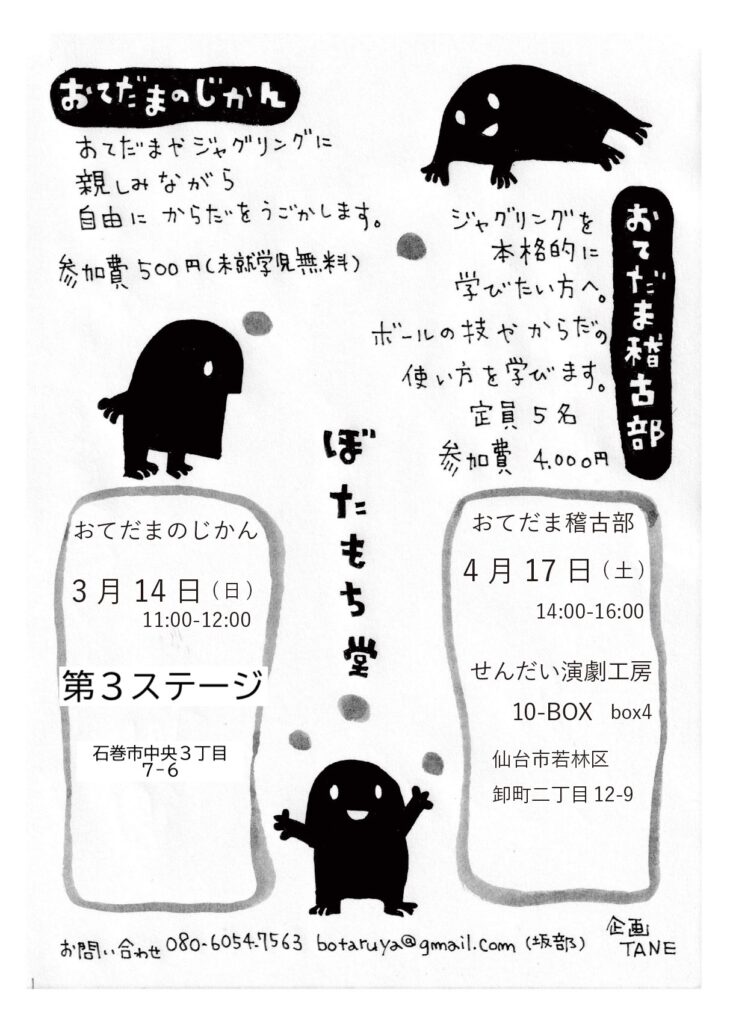 おてだまのじかん
おてだまやジャグリングに
親しみながら
自由にからだをうごかします。
参加費500円(未就学児無料)
おてだま稽古部
ジャグリングを
本格的に
学びたい方へ。
ボールの技やからだの
使い方を学びます。
定員5名
参加費 4,000円
ぼたもち堂
おてだまのじかん
3月14日(日)
11:00-12:00
第3ステージ
石巻市中央3丁目
7-6
おてだま稽古部
4月17日(土)
14:00-16:00
せんだい演劇工房
10-BOX box4
仙台市若林区
卸町二丁目12-9
お問い合わせ 080-6054-7563 botaruya@gmail.com (坂部)
企画
TANE